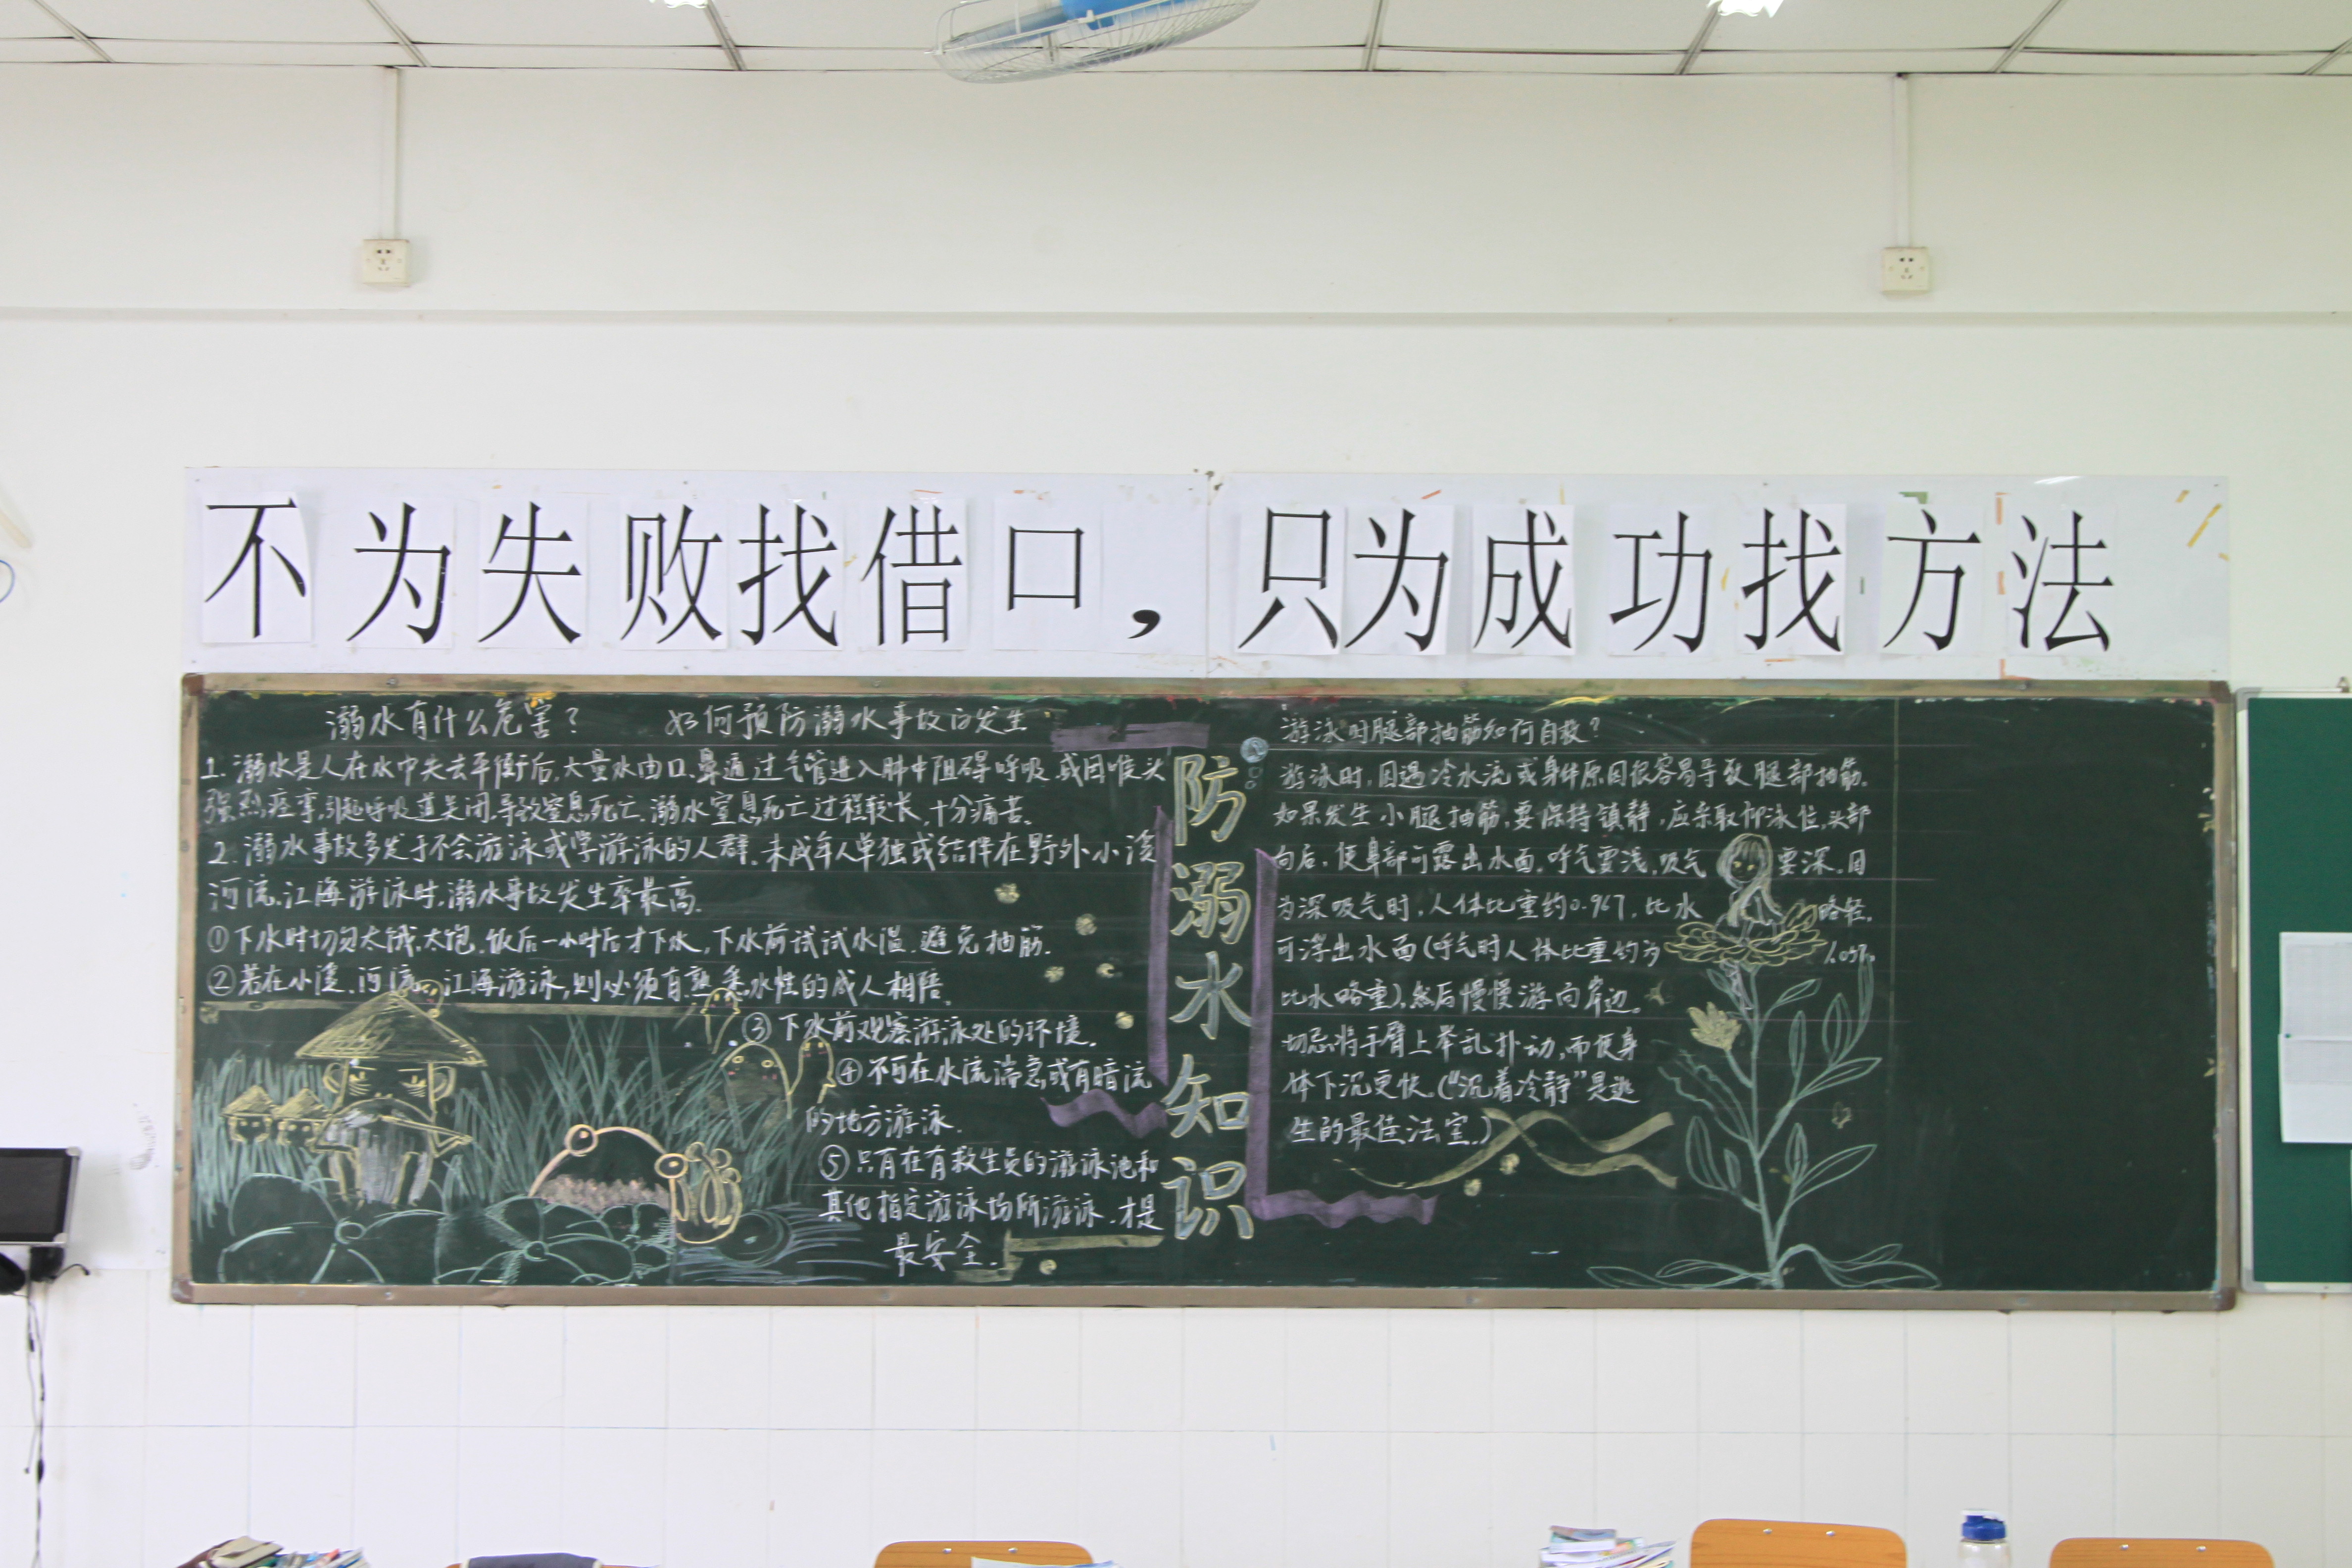 不为失败找借口，只为成功找方法
溺水有什么危害？ 如何预防溺水事故的发生
1.溺水是人在水中失去平衡后,大量水由口、鼻通过气管进入肺中阻碍呼吸,或因喉头
强烈痉挛,引起呼吸道关闭,导致窒息死亡.溺水窒息死亡过程较长,十分痛苦.
2.溺水事故多发于不会游泳或学游泳的人群.未成年人单独或结伴在野外小溪
河流、江海游泳时,溺水事故发生率最高.
①下水时切勿太饿、太饱.饭后一小时后才下水,下水前试试水温.避免抽筋.
②若在小溪、河流、江海游泳,则必须有熟悉水性的成人相陪.
③下水前观察游泳处的环境.
④不可在水流湍急或有暗流
的地方游泳.
⑤只有在有救生员的游泳池和
其他指定游泳场所游泳.才是
最安全.
防溺水知识
游泳时腿部抽筋如何自救？
游泳时,因遇冷水流或身体原因很容易导致腿部抽筋.
如果发生小腿抽筋,要保持镇静,应采取仰泳位,头部
向后,使鼻部可露出水面.呼气要浅,吸气要深.因
为深吸气时,人体比重约0.967,比水略轻.
可浮出水面(呼气时人体比重约为1.057.
比水略重),然后慢慢游向岸边。
切忌将手臂上举乱扑动,而使身
体下沉更快.(“沉着冷静”是逃
生的最佳法宝.)